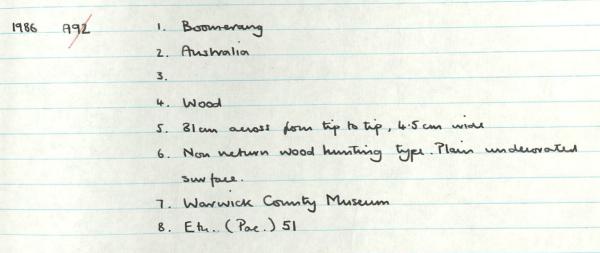 1986 A92 1. Boomerang
2. Australia
3.
4. Wood
5. 81cm across from tip to tip, 4.5cm wide
6. Non return wood hunting type. Plain undecorated
surface.
7. Warwick County Museum
8. Eth. (Pac.) 51